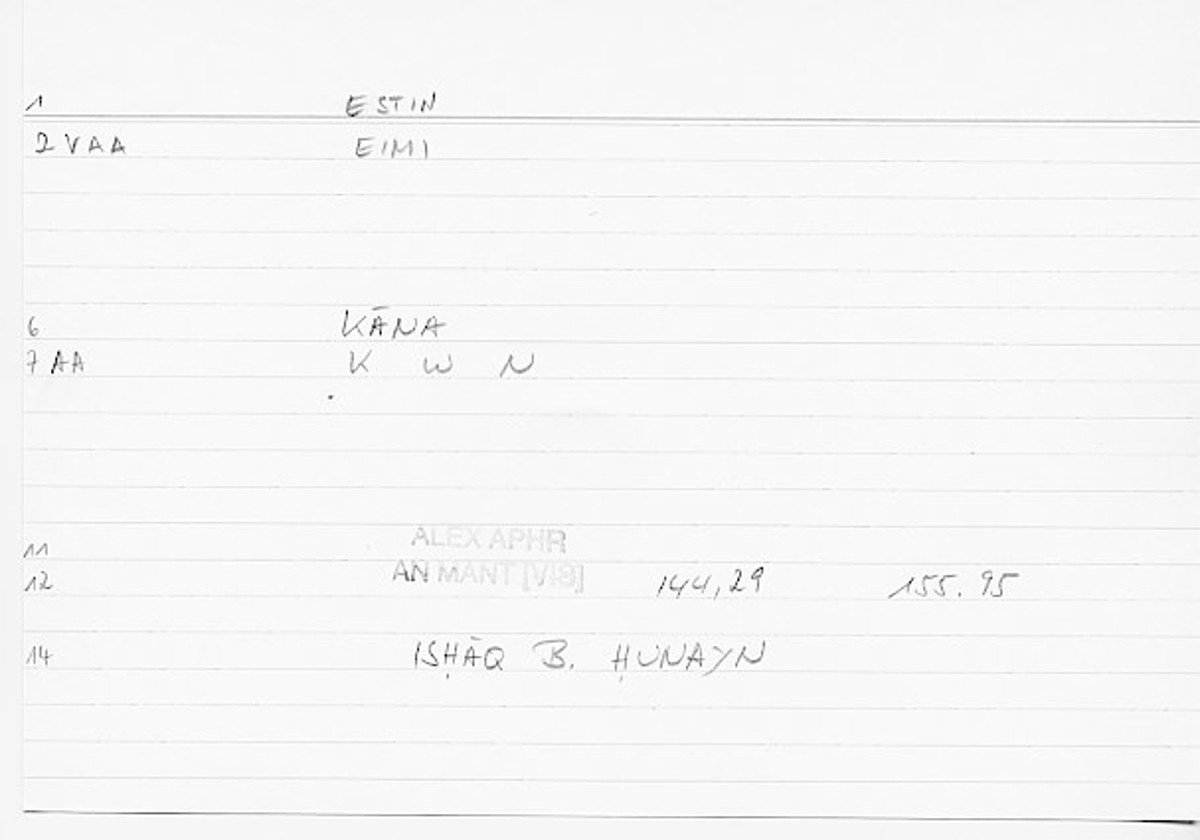 1 ESTIN
2 VAA EIMI
6 KĀNA
7 AA K W N
11 ALEX APHR
12 AN MANT [VIS] 144,29 155.95
14 ISḤĀQ B. ḤUNAYN